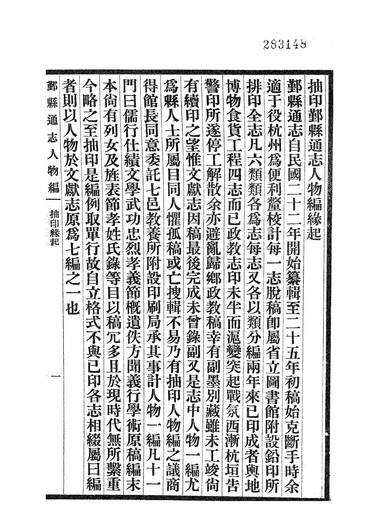 283148
抽印鄞縣通志人物編緣起
鄞縣通志自民國二十二年開始纂輯至二十五年初稿始克斷手時余
適于役杭州爲便利釐校計每一志脫稿卽屬省立圖書館附設鉛印所
排印全志凡六類類各爲志每志又各以類分編兩年來已印成者輿地
博物食貨工程四志而已政敎志印未半而滬變突起戰氛西漸杭垣吿
警印所遂停工解散余亦避亂歸鄉政敎稿幸有副墨別藏雖未工竣尙
有續印之望惟文獻志因稿最後完成未曾錄副又是志中人物一編尤
爲縣人士所屬目同人懼孤稿或亡搜輯不易乃有抽印人物編之議商
得館長同意委託七邑敎養所附設印刷局承其事計人物一編凡十一
門曰儒行仕績文學武功忠烈孝義節槪遺佚方聞義行學術原稿編末
本尙有列女及旌表節孝姓氏錄等目以稿宂多且於現時代無所繫重
今略之至抽印是編例取單行故自立格式不與已印各志相綴屬曰編
者則以人物於文獻志原爲七編之一也
鄞縣通志人物編
抽印緣起
一